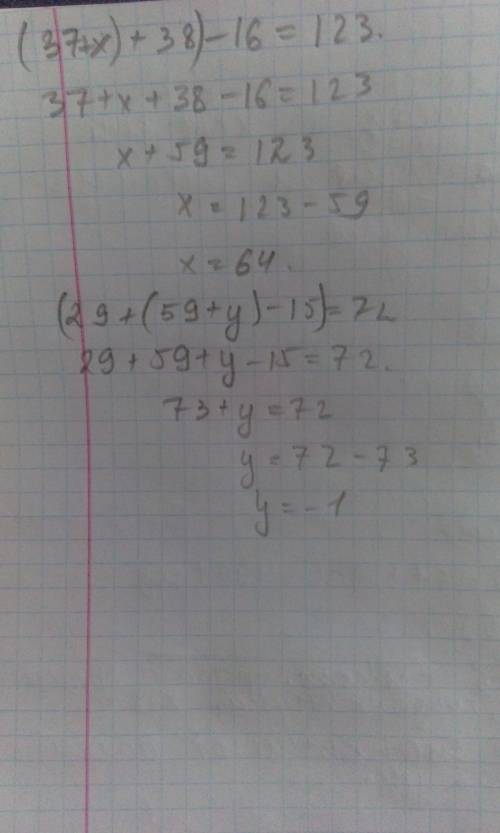 (37+x)+38)-16=123.
37+x+38-16=123
x+59=123
x=123-59
x=64.
(29+(59+y)-15)=72
29+59+y-15=72.
73+y=72
y=72-73
y=-1